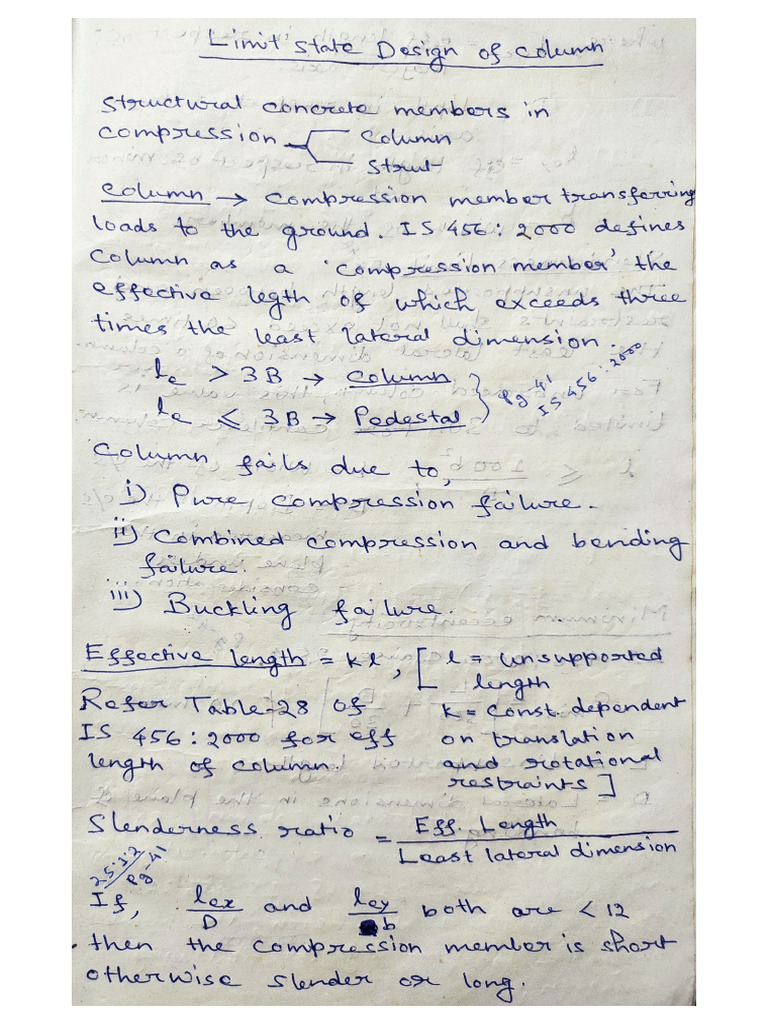 Limit State Design of Column
Structural concrete members in
compression Column
Strut
Column → Compression member transferring
loads to the ground. IS 456: 2000 defines
Column as a 'compression member' the
effective legth of which exceeds three
times the least lateral dimension.
le > 3B → Column
le ≤ 3B → Pedestal
Pg 41
IS 456: 2000
Column fails due to,
i) Pure compression failure.
ii) Combined compression and bending
failure.
iii) Buckling failure.
Effective length = kl, [ l = Unsupported
length
Refer Table-28 of
k = Const. dependent
IS 456: 2000 for eff
on translation
length of column
and rotational
restraints ]
Slenderness ratio = Eff. Length / Least lateral dimension
25.1.2
Pg-41
If, lex/D and ley/b both are < 12
then the compression member is short
otherwise slender or long.